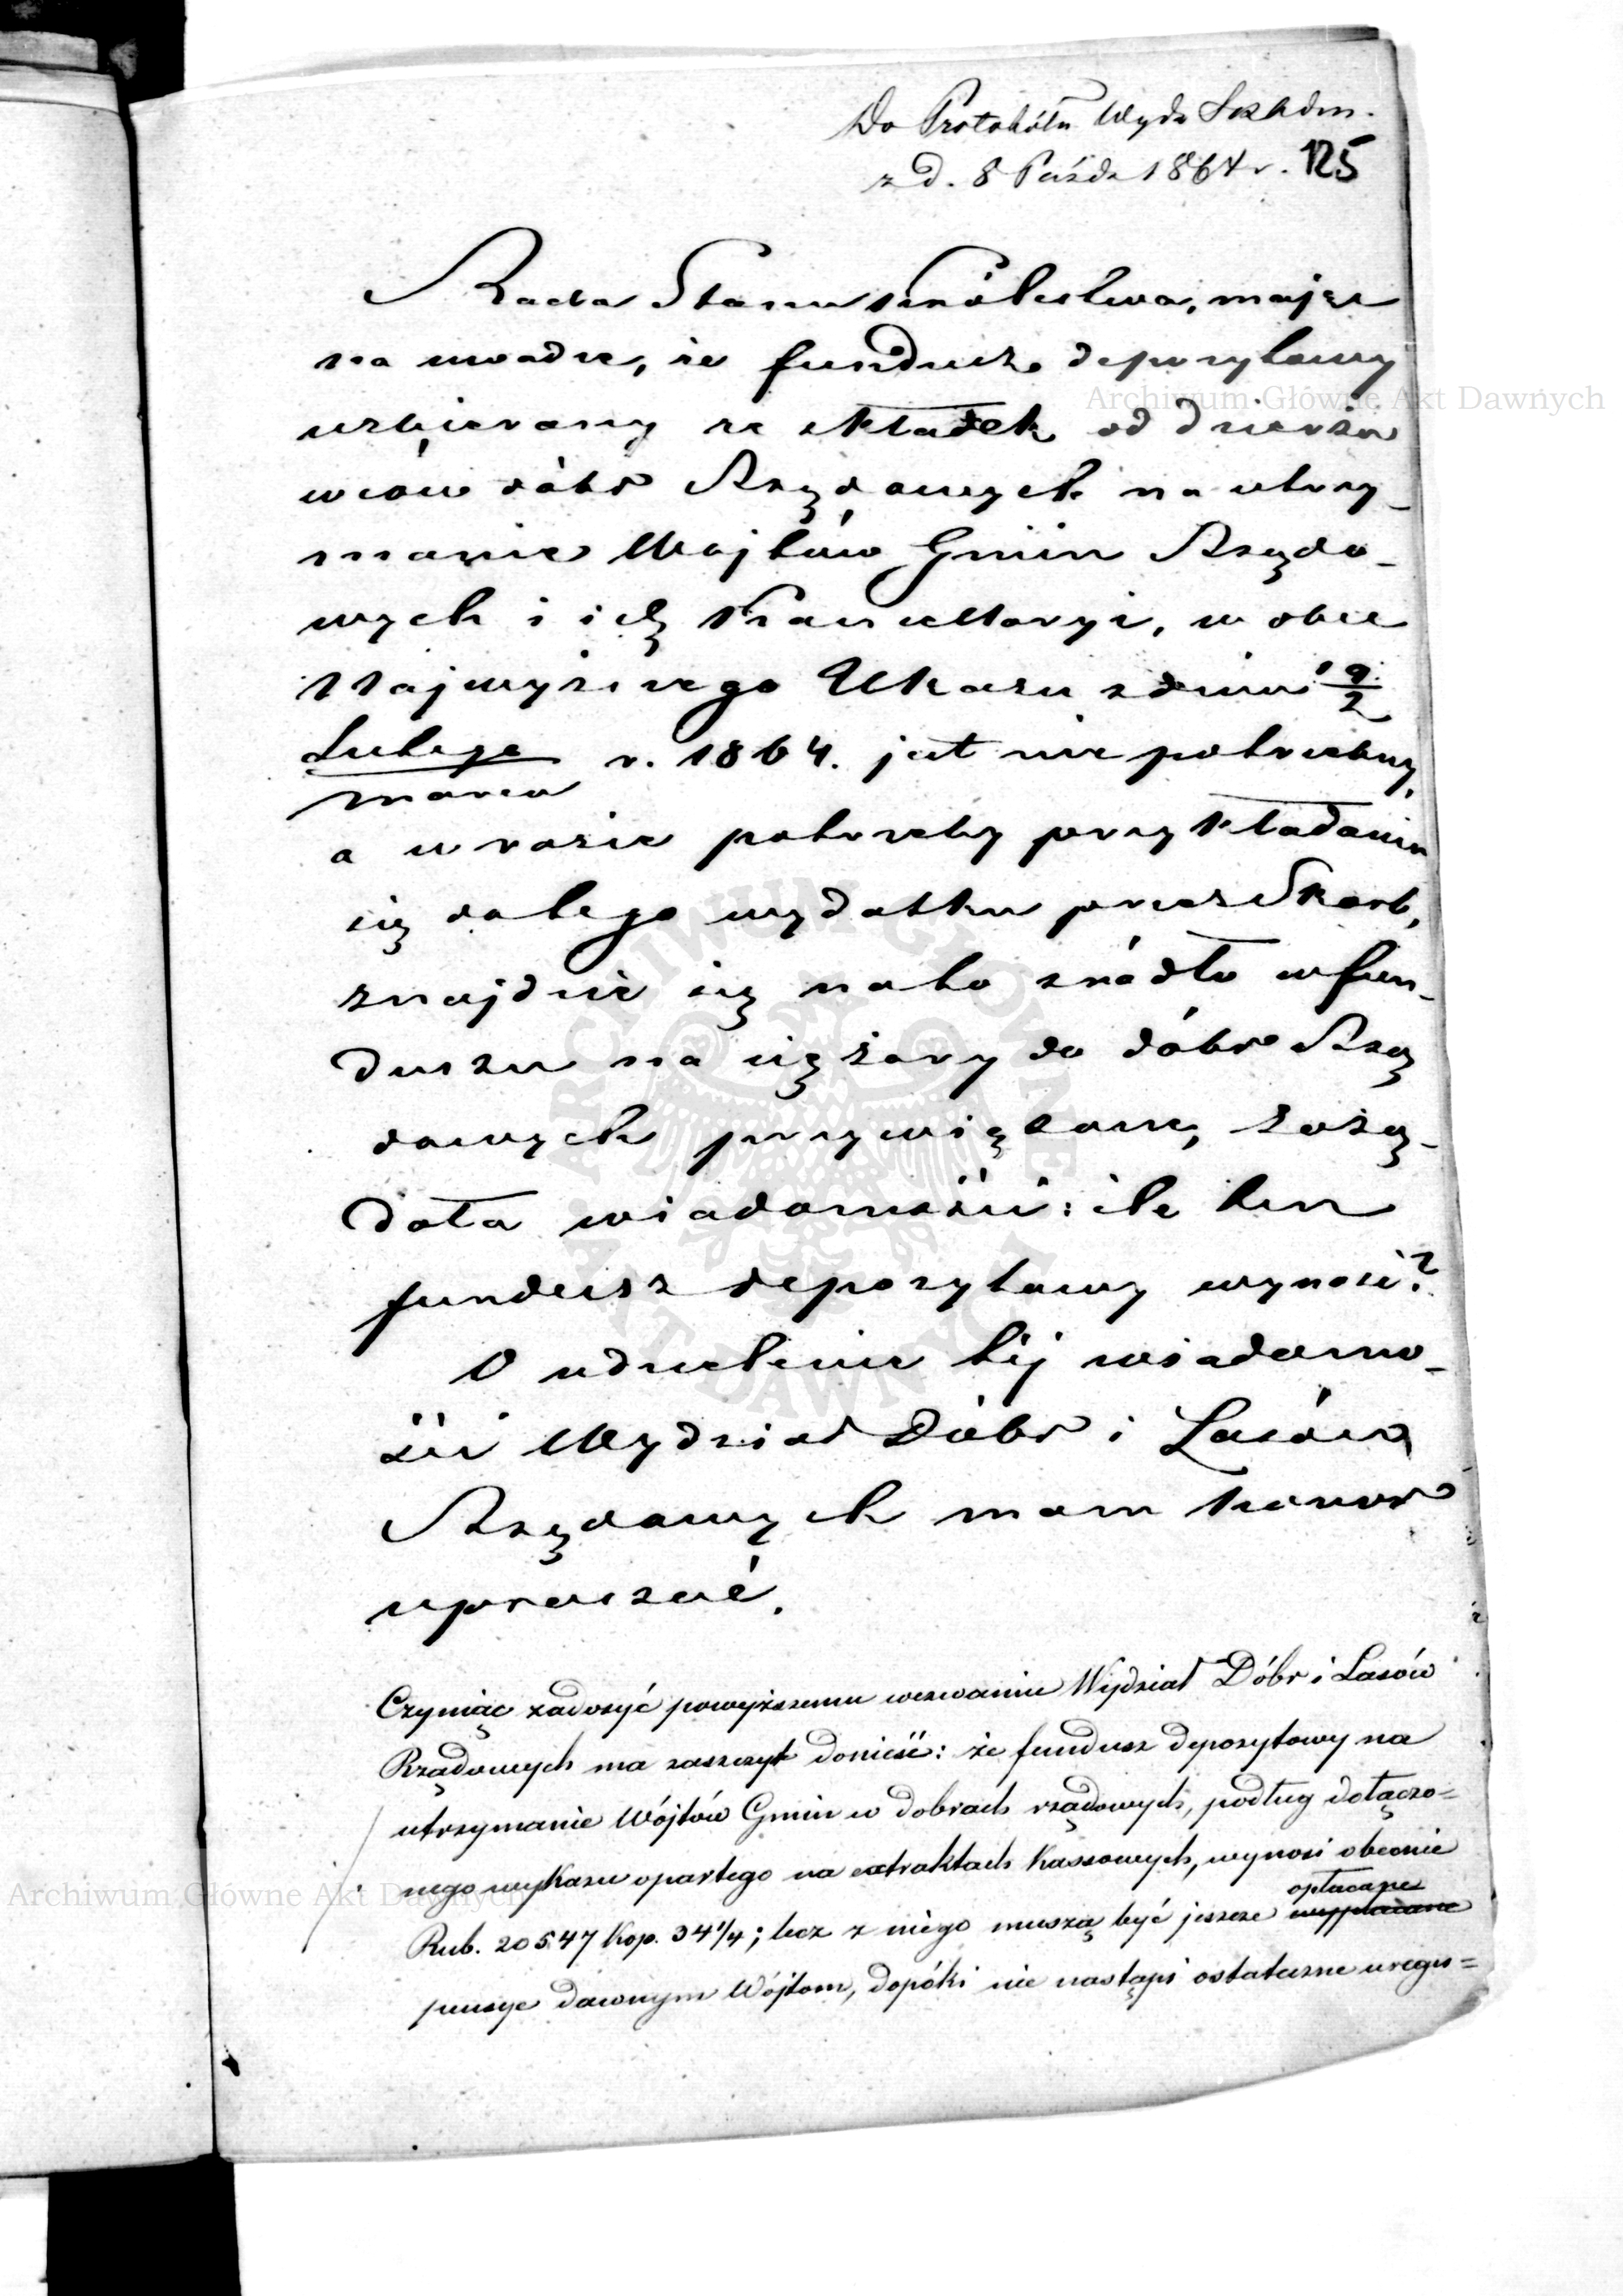 Do Protokółu Wydz Skadm.
z d. 8 Paźdz 1864 r. 125
Rada Stanu Królestwa, mając
na uwadze, że fundusz depozytowy
uzbierany ze składek od dzierża
wców dóbr Rządowych na utrzy-
manie Wójtów Gmin Rządo-
wych i ich Kancellaryi, w obec
Najwyższego Ukazu z dnia 19/2
Lutego/Marca r. 1864. jest nie potrzebny,
a w razie potrzeby przykładania
się do tego wydatku przez Skarb,
znajdzie się na to źródło w fun-
duszu na ciężary do dóbr Rzą
dowych przywiązane, zażą-
dała wiadomości: ile ten
fundusz depozytowy wynosi?
O udzielenie téj wiadomo-
ści Wydział Dóbr i Lasów
Rządowych mam honor
upraszać.
Czyniąc zadosyć powyższemu wezwaniu Wydział Dóbr i Lasów
Rządowych ma zaszczyt donieść: że fundusz depozytowy na
utrzymanie Wójtów Gmin w dobrach rządowych, podług dołączo=
nego wykazu opartego na extraktach Kassowych, wynosi obecnie
opłacane
Rub. 20547 Kop. 34 1/4; lecz z niego muszą być jeszcze wypłacane
pensye dawnym Wójtom, dopóki nie nastąpi ostateczne uregu=
Archiwum Główne Akt Dawnych
Archiwum Główne Akt Dawnych
ARCHIWUM GŁÓWNE AKT DAWNYCH